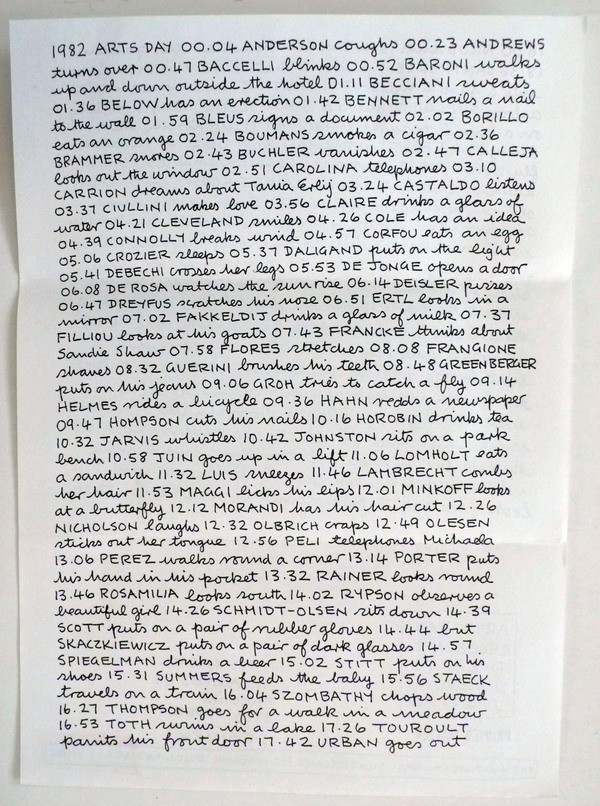 1982 ARTS DAY 00.04 ANDERSON coughs 00.23 ANDREWS
turns over 00.47 BACCELLI blinks 00.52 BARONI walks
up and down outside the hotel 01.11 BECCIANI sweats
01.36 BELOW has an erection 01.42 BENNETT nails a nail
to the wall 01.59 BLEUS signs a document 02.02 BORILLO
eats an orange 02.24 BOUMANS smokes a cigar 02.36
BRAMMER snores 02.43 BUCHLER vanishes 02.47 CALLEJA
looks out the window 02.51 CAROLINA telephones 03.10
CARRION dreams about Tania 03.24 CASTALDO listens
03.37 CIULLINI makes love 03.56 CLAIRE drinks a glass of
water 04.21 CLEVELAND smiles 04.26 COLE has an idea
04.39 CONNOLLY breaks wind 04.57 CORFOU eats an egg
05.06 CROZIER sleeps 05.37 DALIGAND puts on the light
05.41 DEBECHI crosses her legs 05.53 DE JONGE opens a door
06.08 DE ROSA watches the sunrise 06.14 DEISLER pisses
06.47 DREYFUS scratches his nose 06.51 ERTL looks in a
mirror 07.02 FAKKELDIJ drinks a glass of milk 07.37
FILLIOU looks at his goats 07.43 FRANCKE thinks about
Sandie Shaw 07.58 FLORES stretches 08.08 FRANGIONE
shaves 08.32 GUERINI brushes his teeth 08.48 GREENBERGER
puts on his jeans 09.06 GROH tries to catch a fly 09.14
HELMES rides a bicycle 09.36 HAHN reads a newspaper
09.47 HOMPSON cuts his nails 10.16 HOROBIN drinks tea
10.32 JARVIS whistles 10.42 JOHNSTON sits on a park
bench 10.58 JUIN goes up in a lift 11.06 LOMHOLT eats
a sandwich 11.32 LUIS sneezes 11.46 LAMBRECHT combs
her hair 11.53 MAGGI licks his lips 12.01 MINKOFF looks
at a butterfly 12.12 MORANDI has his hair cut 12.26
NICHOLSON laughs 12.32 OLBRICH craps 12.49 OLESEN
sticks out her tongue 12.56 PELI telephones Michaela
13.06 PEREZ walks round a corner 13.14 PORTER puts
his hand in his pocket 13.32 RAINER looks round
13.46 ROSAMILIA looks south 14.02 RYPSON observes a
beautiful girl 14.26 SCHMIDT-OLSEN sits down 14.39
SCOTT puts on a pair of rubber gloves 14.44 but
SKACZKIEWICZ puts on a pair of dark glasses 14.57
SPIEGELMAN drinks a beer 15.02 STITT puts on his
shoes 15.31 SUMMERS feeds the baby 15.56 STAECK
travels on a train 16.04 SZOMBATHY chops wood
16.27 THOMPSON goes for a walk in a meadow
16.53 TOTH swims in a lake 17.26 TOUROULT
paints his front door 17.42 URBAN goes out